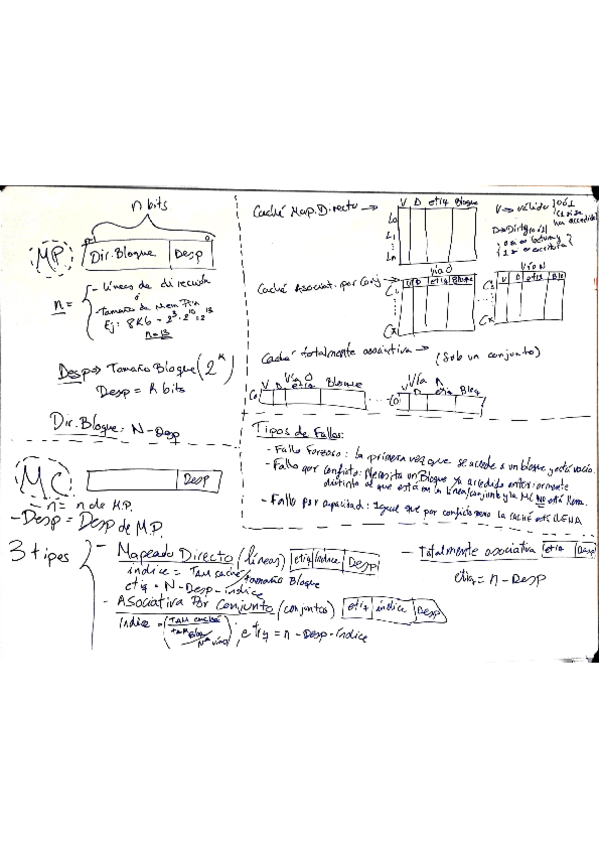 n bits
MP
Dir. Bloque Desp
n =
- líneas de dirección
ó
- Tamaño de Mem Prin
Ej: 8Kb = 2^3 · 2^10 = 2^13
n = 13
Desp => Tamaño Bloque (2^k)
Desp = k bits
Dir. Bloque: N-Desp
Caché Map. Directo ->
V D etiq Bloque
L0
L1
Ln
V => válido
Caché Asociat. por Conj
Vía 0
V D etiq Bloque
Vía N
V D etiq Blo
Caché totalmente asociativa -> (Solo un conjunto)
Vía 0
V D etiq Bloque
C0
Vía n
V D etiq Bloq
C0
Tipos de Fallos:
- Fallo Forzoso: La primera vez que se accede a un bloque y está vacío.
- Fallo por conflicto: Necesita un Bloque ya accedido anteriormente
distinto al que está en la línea/conjunto y la MC NO está llena.
- Fallo por capacidad: Igual que por conflicto pero la caché está LLENA
MC
Desp
- n = n de M.P.
- Desp = Desp de M.P.
3 tipos
- Mapeado Directo (líneas) etiq índice Desp
índice = Tam caché/tamaño Bloque
etiq = N - Desp - índice
- Asociativa Por Conjunto (conjuntos) etiq índice Desp
índice = (Tam caché / tam Bloq / Nº vías), etiq = n - Desp - índice
- Totalmente asociativa etiq Desp
etiq = n - Desp